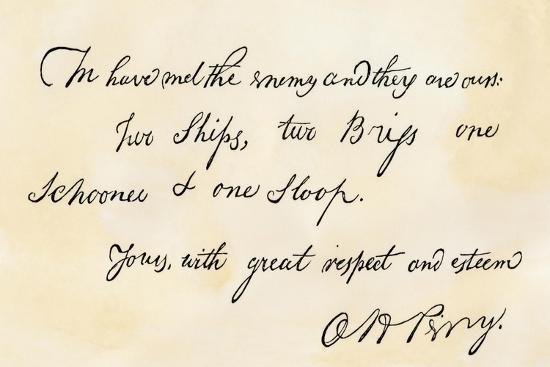 We have met the enemy and they are ours:
Two Ships, two Brigs one
Schooner & one Sloop.
Yours, with great respect and esteem
O H Perry.